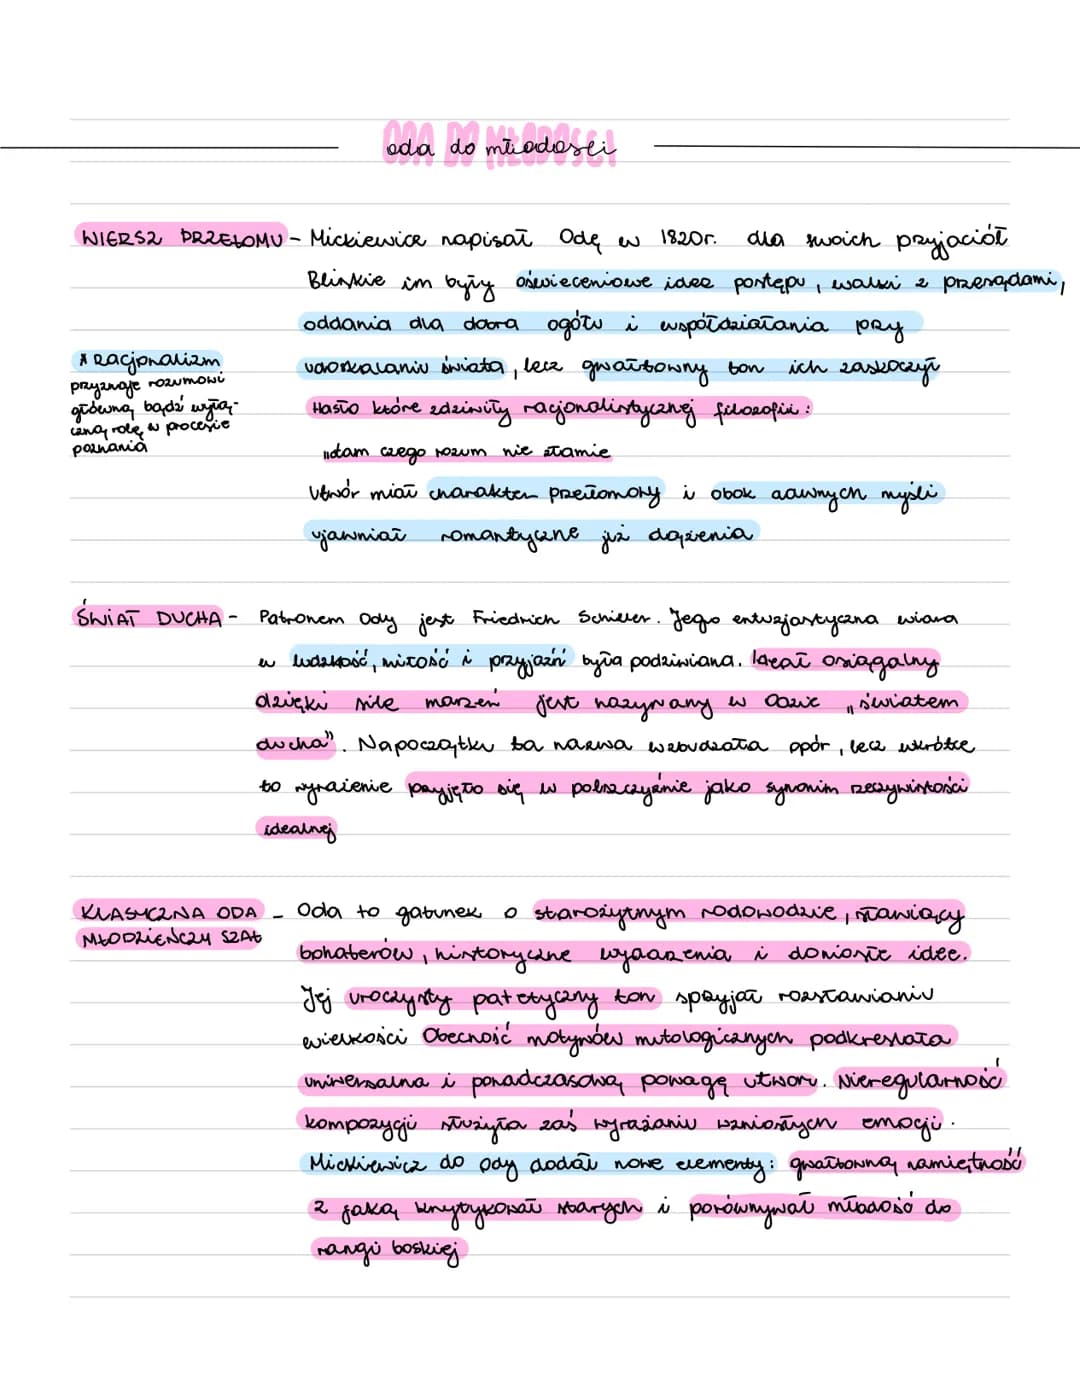 ODA DO MŁODOŚCI
oda do młodości
WIERSZ PRZEŁOMU - Mickiewicz napisał Odę w 1820r. dla swoich przyjaciół
Bliskie im były oświeceniowe idee postępu, walki z przesądami,
oddania dla dobra ogółu i współdziałania przy
udoskalaniu świata, lecz gwałtowny ton ich zaskoczył
* racjonalizm
przyznaje rozumowi
główną bądź wyłą-
czną rolę w procesie
poznania
Hasło które zdziwiły racjonalistycznej filozofii:
"łam czego rozum nie złamie
Utwór miał charakter przełomowy i obok dawnych myśli
ujawniał romantyczne już dążenia
ŚWIAT DUCHA - Patronem Ody jest Friedrich Schiller. Jego entuzjastyczna wiara
w ludzkość, miłość i przyjaźń była podziwiana. Ideał osiągalny
dzięki sile marzeń jest nazywany w Odzie „światem
ducha". Napoczątku ta nazwa wzbudzała opór, lecz wkrótce
to wyrażenie przyjęło się w polszczyźnie jako synonim rzeczywistości
idealnej
KLASYCZNA ODA - Oda to gatunek o starożytnym rodowodzie, sławiący
MŁODZIEŃCZY SZAŁ
bohaterów, historyczne wydarzenia i doniosłe idee.
Jej uroczysty patetyczny ton spzyjał rozsławianiu
wielkości Obecność motywów mitologicznych podkreslała
uniwersalna i ponadczasową powagę utworu. Nieregularność
kompozycji służyła zaś wyrażaniu wzniosłych emocji.
Mickiewicz do ody dodał nowe elementy: gwałtowną namiętność
z jaką krytykował starych i porównywał młodość do
rangi boskiej